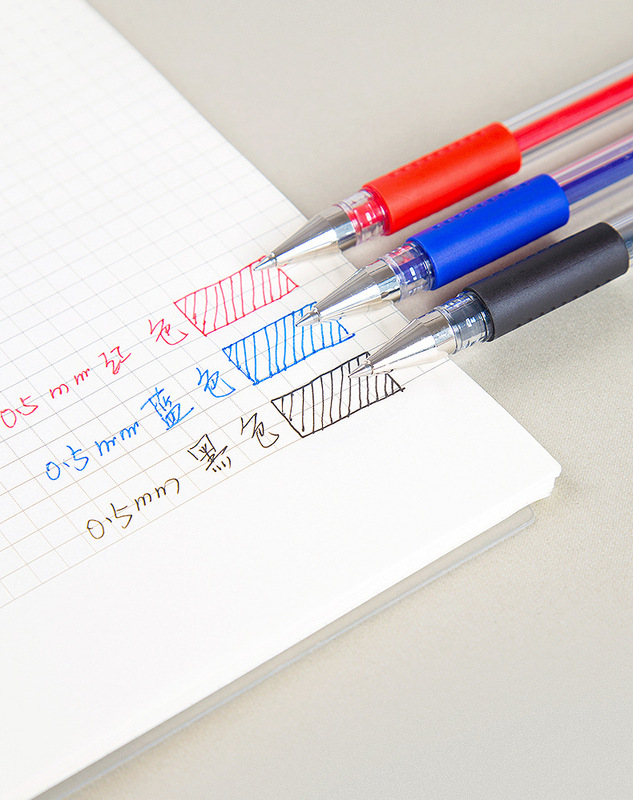 0.5mm 红色
0.5mm 蓝色
0.5mm 黑色